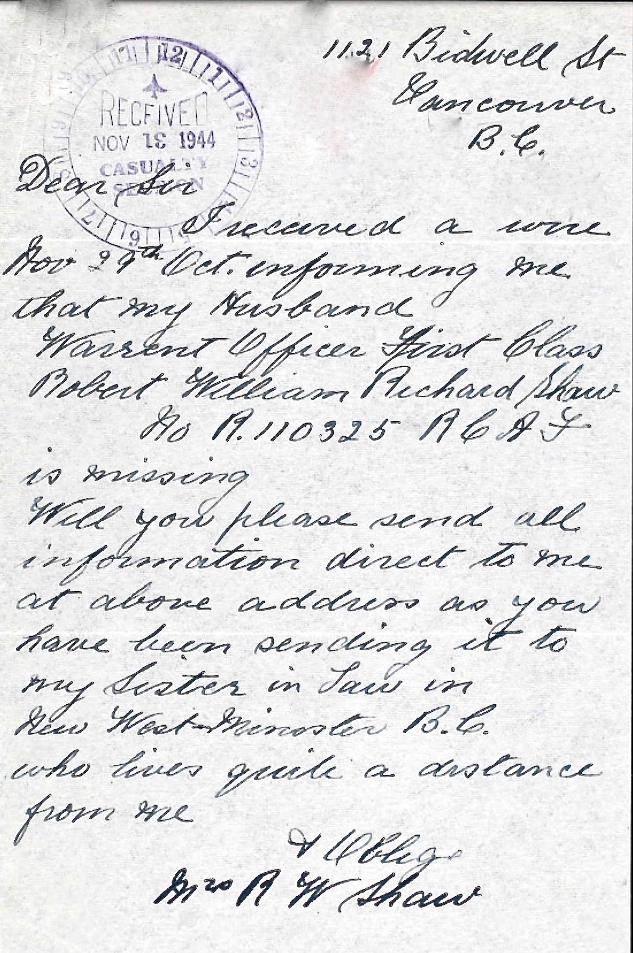 1121 Bidwell St
Vancouver
B.C.
12 1 2 3
RECEIVED
NOV 18 1944
CASUALTY
SECTION
Dear Sir
I received a wire
Nov 29th Oct. informing me
that my Husband
Warrent Officer First Class
Robert William Richard Shaw
No R.110325 RCAF
is missing
Will you please send all
information direct to me
at above address as you
have been sending it to
my Sister in Law in
New West-Minster B.C.
who lives quite a distance
from me
& Oblige
Mrs R W Shaw